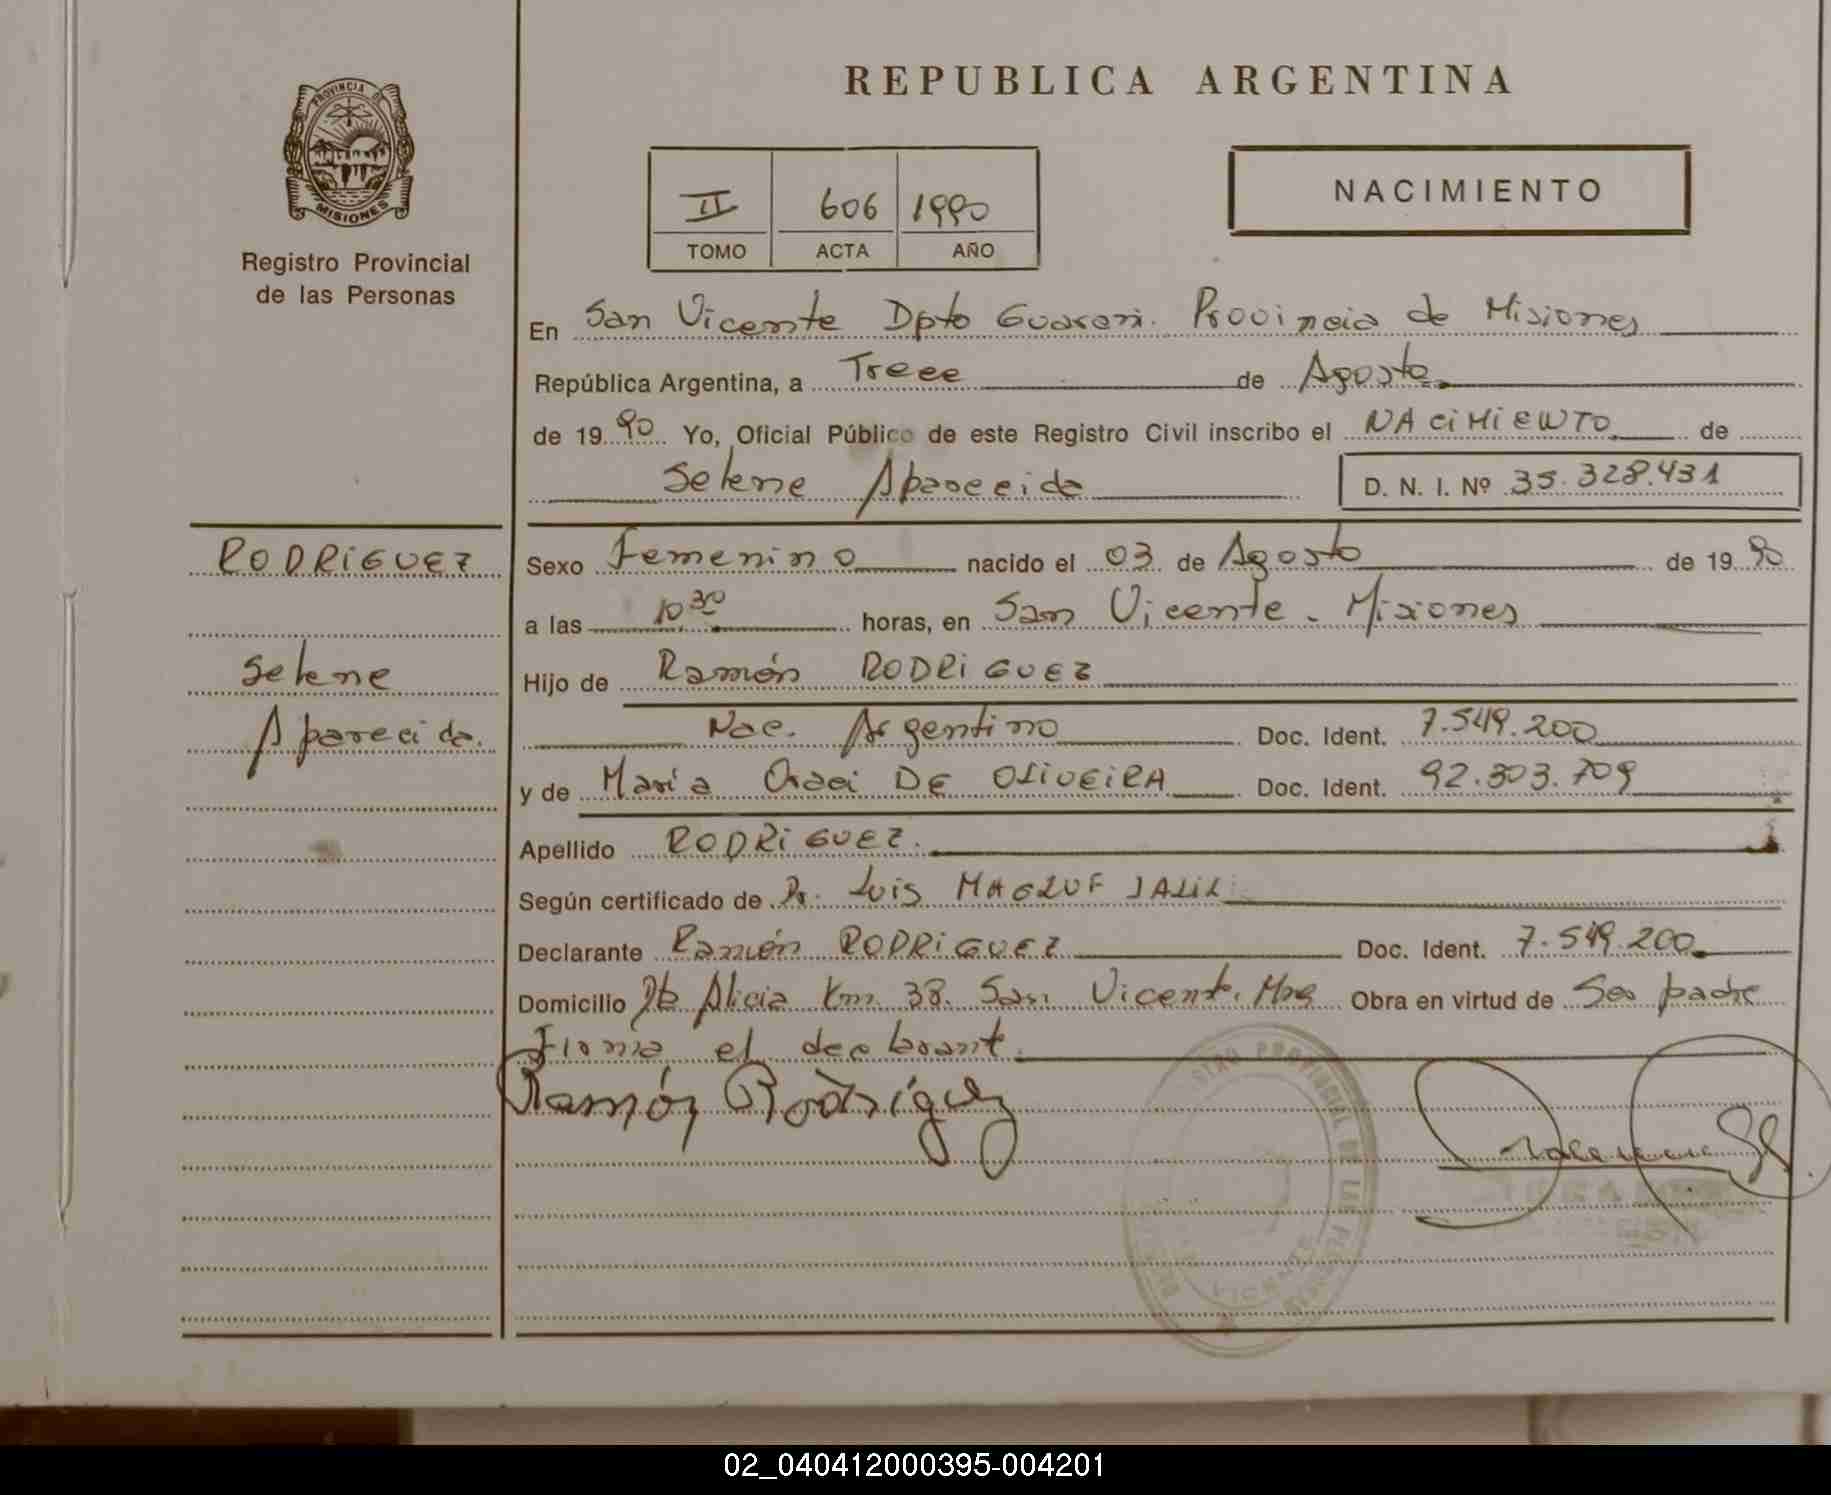 REPUBLICA ARGENTINA
PROVINCIA DE
MISIONES
Registro Provincial
de las Personas
II 606 1990
TOMO ACTA AÑO
NACIMIENTO
En San Vicente Dpto Guarani. Provincia de Misiones
República Argentina, a Trece de Agosto
de 1990 Yo, Oficial Público de este Registro Civil inscribo el NACIMIENTO de
Selene Aparecida D. N. I. Nº 35.328.431
RODRIGUEZ
Selene
Aparecida.
Sexo Femenino nacido el 03 de Agosto de 1990
a las 10 30 horas, en San Vicente. Misiones
Hijo de Ramón RODRIGUEZ
Nac. Argentino Doc. Ident. 7.549.200
y de María Oraci DE OLIVEIRA Doc. Ident. 92.303.709
Apellido RODRIGUEZ.
Según certificado de Dr. Luis JALIL
Declarante Ramón RODRIGUEZ Doc. Ident. 7.549.200
Domicilio Alicia Km. 38. San Vicente. Mnes Obra en virtud de Ser padre
Firma el declarante.
Ramón Rodríguez
02_040412000395-004201